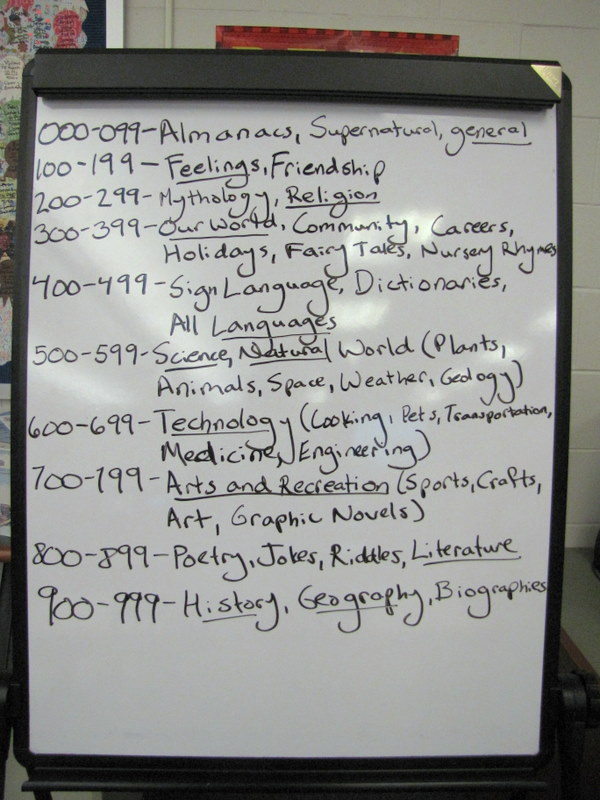 000-099-Almanacs, Supernatural, general
100-199-Feelings, Friendship
200-299-Mythology, Religion
300-399-Our World, Community, Careers,
Holidays, Fairy Tales, Nursery Rhymes
400-499-Sign Language, Dictionaries,
All Languages
500-599-Science, Natural World (Plants,
Animals, Space, Weather, Geology)
600-699-Technology (Cooking, Pets, Transportation,
Medicine, Engineering)
700-799-Arts and Recreation (Sports, Crafts,
Art, Graphic Novels)
800-899-Poetry, Jokes, Riddles, Literature
900-999-History, Geography, Biographies